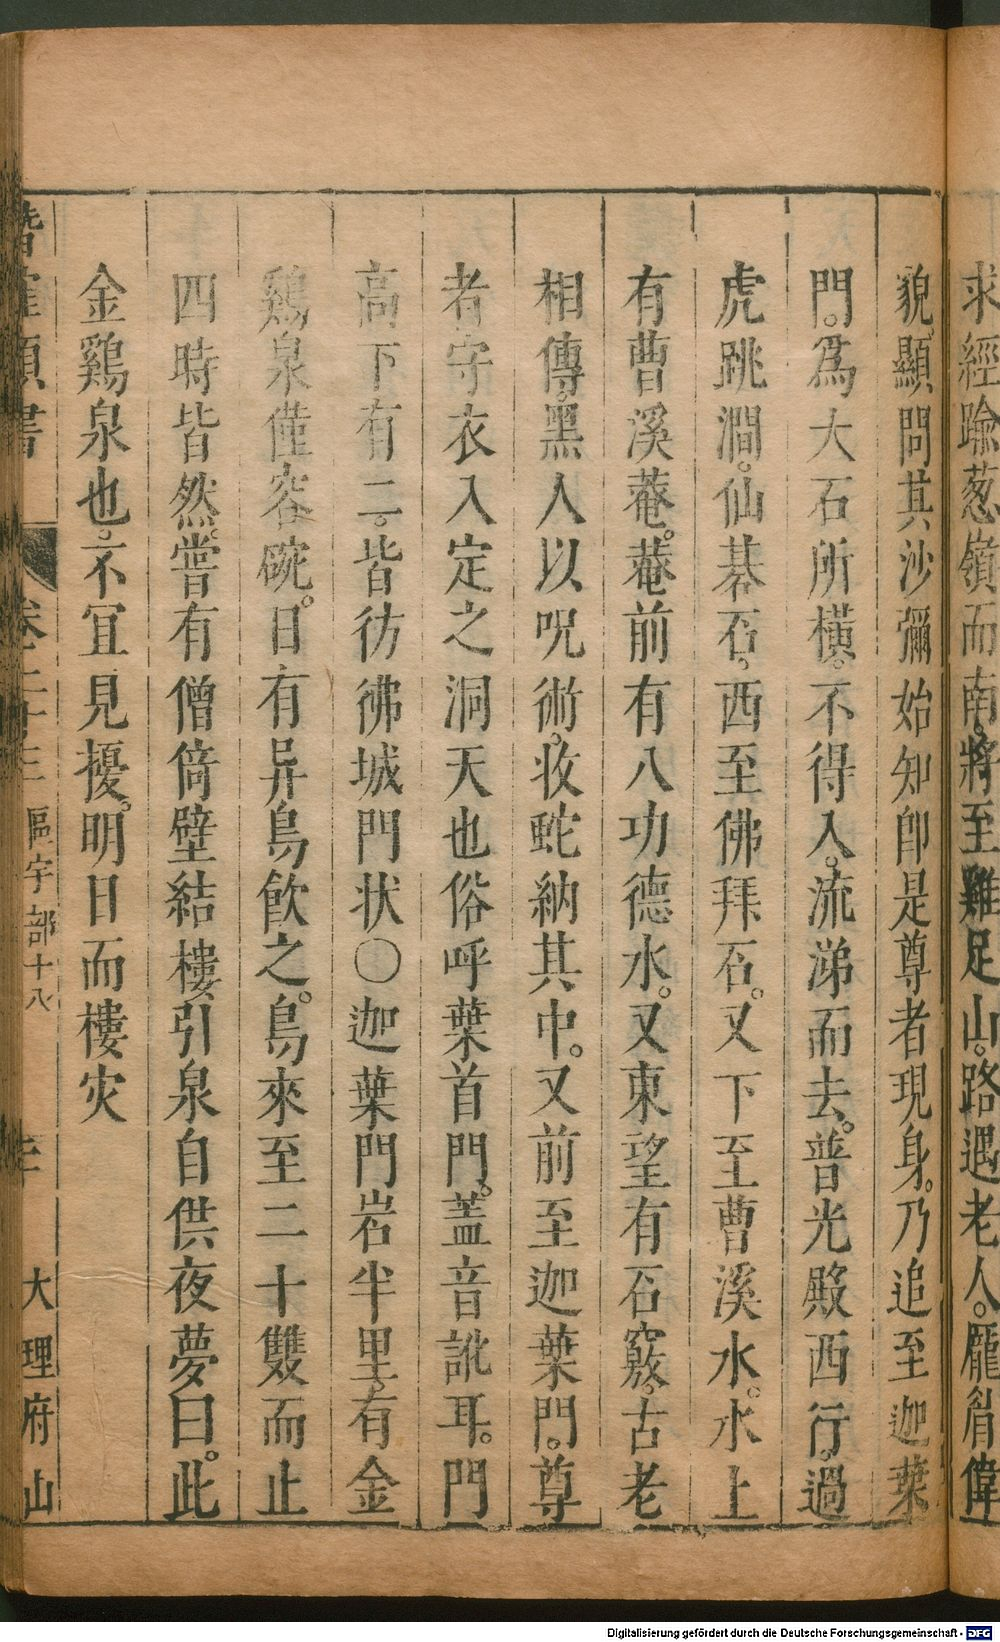 求經踰葱嶺而南。將至雞足山。路遇老人。龎眉偉
貌。顯問其沙彌始知卽是尊者現身。乃追至迦葉
門。爲大石所橫。不得入。流涕而去。普光殿西行。過
虎跳澗。仙棊石。西至佛拜石。又下至曹溪水。水上
有曹溪菴。菴前有八功德水。又東望有石竅。古老
相傳。黑人以呪術。收蛇納其中。又前至迦葉門。尊
者守衣入定之洞天也俗呼葉首門。蓋音訛耳。門
高下有二。皆彷彿城門状〇迦葉門岩半里。有金
鷄泉僅容碗。日有异鳥飲之。鳥來至二十雙而止
四時皆然。嘗有僧倚壁結樓。引泉自供夜夢曰。此
金鷄泉也。不冝見擾。明日而樓灾
潛確類書 卷二十三 區宇部十八 大理府山
Digitalisierung gefördert durch die Deutsche Forschungsgemeinschaft - DFG